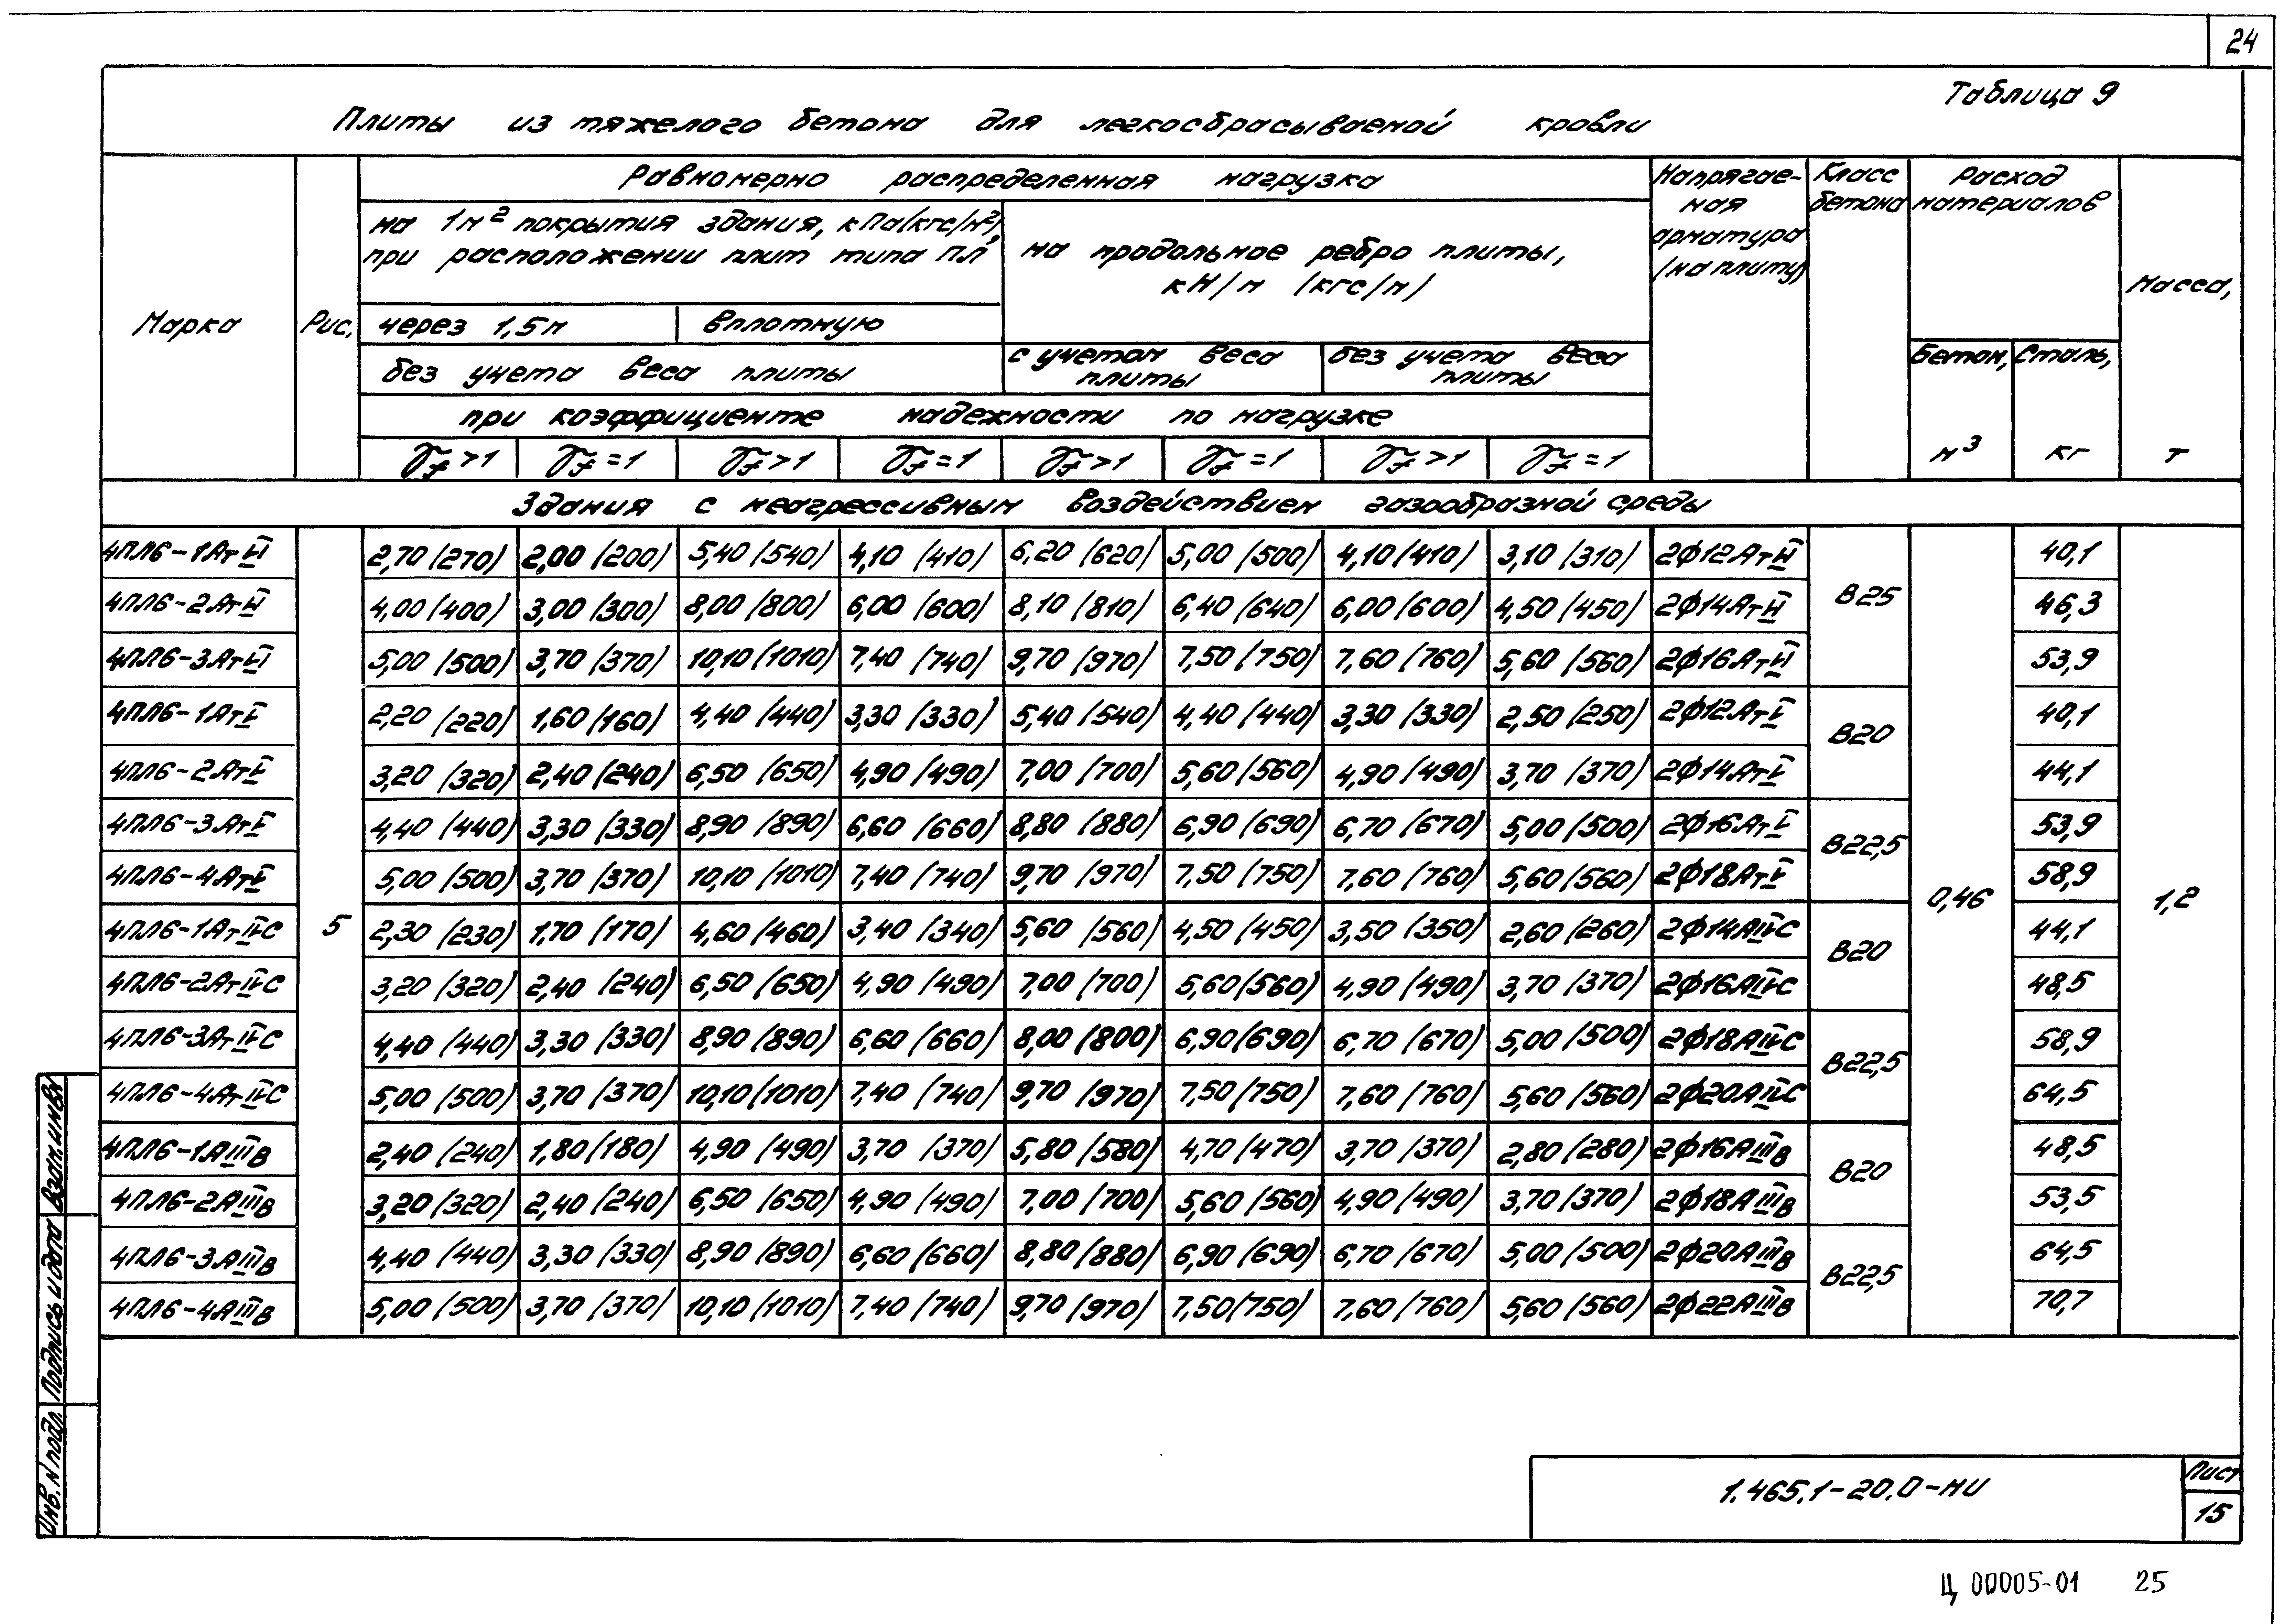 24
Таблица 9
Плиты из тяжелого бетона для легкосбрасываемой кровли
Марка
Рис.
Равномерно распределенная нагрузка
на 1м² покрытия здания, кПа(кгс/м²),
при расположении плит типа ПЛ
через 1,5м вплотную
без учета веса плиты
на продольное ребро плиты,
кН/м (кгс/м)
с учетом веса плиты
без учета веса плиты
при коэффициенте надежности по нагрузке
γf>1 γf=1 γf>1 γf=1 γf>1 γf=1 γf>1 γf=1
Напрягае-
мая
арматура
(на плиту)
Класс
бетона
Расход
материалов
Бетон, м³
Сталь, кг
Масса, т
Здания с неагрессивным воздействием газообразной среды
4ПЛ6-1АтVI 2,70 (270) 2,00 (200) 5,40 (540) 4,10 (410) 6,20 (620) 5,00 (500) 4,10 (410) 3,10 (310) 2ф12АтVI 40,1
4ПЛ6-2АтVI 4,00 (400) 3,00 (300) 8,00 (800) 6,00 (600) 8,10 (810) 6,40 (640) 6,00 (600) 4,50 (450) 2ф14АтVI В25 46,3
4ПЛ6-3АтVI 5,00 (500) 3,70 (370) 10,10 (1010) 7,40 (740) 9,70 (970) 7,50 (750) 7,60 (760) 5,60 (560) 2ф16АтVI 53,9
4ПЛ6-1АтV 2,20 (220) 1,60 (160) 4,40 (440) 3,30 (330) 5,40 (540) 4,40 (440) 3,30 (330) 2,50 (250) 2ф12АтV В20 40,1
4ПЛ6-2АтV 3,20 (320) 2,40 (240) 6,50 (650) 4,90 (490) 7,00 (700) 5,60 (560) 4,90 (490) 3,70 (370) 2ф14АтV 44,1
4ПЛ6-3АтV 4,40 (440) 3,30 (330) 8,90 (890) 6,60 (660) 8,80 (880) 6,90 (690) 6,70 (670) 5,00 (500) 2ф16АтV В22,5 53,9
4ПЛ6-4АтV 5,00 (500) 3,70 (370) 10,10 (1010) 7,40 (740) 9,70 (970) 7,50 (750) 7,60 (760) 5,60 (560) 2ф18АтV 58,9
4ПЛ6-1АтIVС 5 2,30 (230) 1,70 (170) 4,60 (460) 3,40 (340) 5,60 (560) 4,50 (450) 3,50 (350) 2,60 (260) 2ф14АIVС В20 0,46 44,1 1,2
4ПЛ6-2АтIVС 3,20 (320) 2,40 (240) 6,50 (650) 4,90 (490) 7,00 (700) 5,60 (560) 4,90 (490) 3,70 (370) 2ф16АIVС 48,5
4ПЛ6-3АтIVС 4,40 (440) 3,30 (330) 8,90 (890) 6,60 (660) 8,00 (800) 6,90 (690) 6,70 (670) 5,00 (500) 2ф18АIVС В22,5 58,9
4ПЛ6-4АтIVС 5,00 (500) 3,70 (370) 10,10 (1010) 7,40 (740) 9,70 (970) 7,50 (750) 7,60 (760) 5,60 (560) 2ф20АIVС 64,5
4ПЛ6-1АIIIв 2,40 (240) 1,80 (180) 4,90 (490) 3,70 (370) 5,80 (580) 4,70 (470) 3,70 (370) 2,80 (280) 2ф16АIIIв В20 48,5
4ПЛ6-2АIIIв 3,20 (320) 2,40 (240) 6,50 (650) 4,90 (490) 7,00 (700) 5,60 (560) 4,90 (490) 3,70 (370) 2ф18АIIIв 53,5
4ПЛ6-3АIIIв 4,40 (440) 3,30 (330) 8,90 (890) 6,60 (660) 8,80 (880) 6,90 (690) 6,70 (670) 5,00 (500) 2ф20АIIIв В22,5 64,5
4ПЛ6-4АIIIв 5,00 (500) 3,70 (370) 10,10 (1010) 7,40 (740) 9,70 (970) 7,50 (750) 7,60 (760) 5,60 (560) 2ф22АIIIв 70,7
Взам.инв№
Подпись и дата
Инв.N подл.
1.465.1-20.0-НИ
Лист
15
Ц 00005-01 25